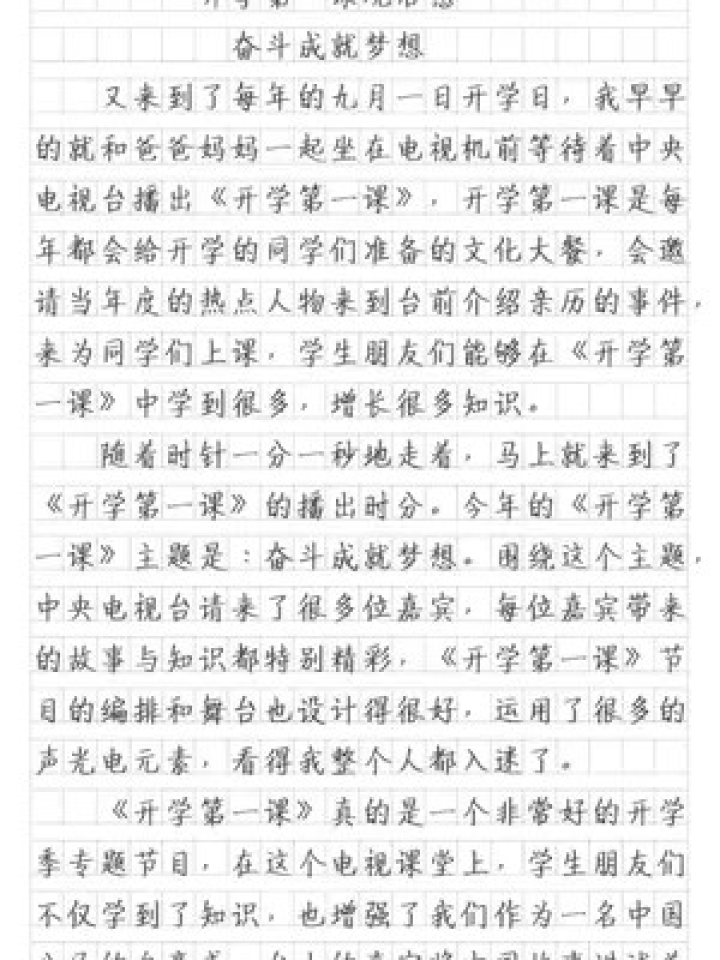 奋斗成就梦想
又来到了每年的九月一日开学日，我早早
的就和爸爸妈妈一起坐在电视机前等待着中央
电视台播出《开学第一课》，开学第一课是每
年都会给开学的同学们准备的文化大餐，会邀
请当年度的热点人物来到台前介绍亲历的事件，
来为同学们上课，学生朋友们能够在《开学第
一课》中学到很多，增长很多知识。
随着时针一分一秒地走着，马上就来到了
《开学第一课》的播出时分。今年的《开学第
一课》主题是：奋斗成就梦想。围绕这个主题，
中央电视台请来了很多位嘉宾，每位嘉宾带来
的故事与知识都特别精彩，《开学第一课》节
目的编排和舞台也设计得很好，运用了很多的
声光电元素，看得我整个人都入迷了。
《开学第一课》真的是一个非常好的开学
季专题节目，在这个电视课堂上，学生朋友们
不仅学到了知识，也增强了我们作为一名中国